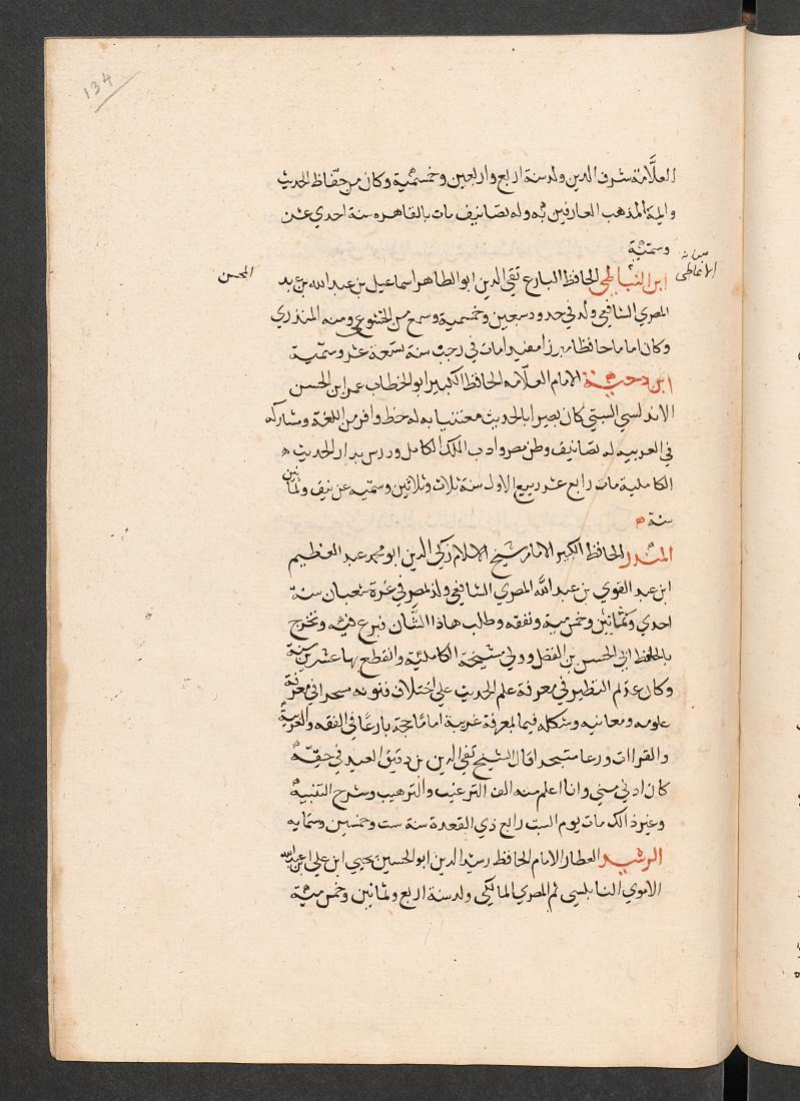 134
العلّامة شرف الدين ولد سنة اربع واربعين وخمسمية وكان من حفّاظ الحديث
وايمة المذهب العارفين به وله تصانيف مات بالقاهره سنة احدي عشر
وستمية
الانماطي
ابن النباطي الحافظ البارع تقي الدين ابو الطاهر اسماعيل بن عبد الله بن عبد
المحسن
المصري الشافعي ولد في حدود سبعين وخمسمية وسمع من الخشوعي ومنه المنذري
وكان اماما حافظا مبرزا مفيدا مات في رجب سنة تسعة عشر وستمية
ابن دحية الامام العلّامه الحافظ الكبير ابو الخطاب عمر ابن الحسن
الاندلسي السبتي كان بصيرا بالحديث معتنيا به له حظ وافر من اللغة ومشاركه
في العربيه له تصانيف وطن مصر وادب الملك الكامل ودرس بدار الحديث
الكاملية مات رابع عشر ربيع الاول سنة ثلاث وثلاثين وستميه عن نيف وثمانين
سنة
المنذر الحافظ الكبير الامام شيخ الاسلام زكي الدين ابو محمد عبد العظيم
ابن عبد القوي بن عبد الله المصري الشافعي ولد بمصر في غرة شعبان سنة
احدي وثمانين وخمس مية وتفقه وطلب هاذا الشّان فبرع فيه وتخرج
بالحافظ ابي الحسن بن الفضل وولي مشيخة الكاملية وانقطع بها عشرين سنة
وكان عديم النظير في معرفة علم الحديث علي اختلاف فنونه متبحرا في معرفة
علومه ومعانيه ومشكله فيما بمعرفة غريبة اماما حجة بارعًا في الفقه والعربية
والقراات ورعا متبحرا قال الشيخ تقي الدين بن دقيق العيد في حقّه
كان ادين مني وانا اعلم منه الف الترغيب والترهيب وشرح التنبيه
وغير ذالك مات يوم السبت رابع ذي القعدة سنة ست وخمسين وستمايه
الرشيد العطار الامام الحافظ رشيد الدين ابو الحسين يحيي ابن علي ابن عبد الله
الاموي النابلسي ثم المصري المالكي ولد سنة اربع وثمانين وخمس مية